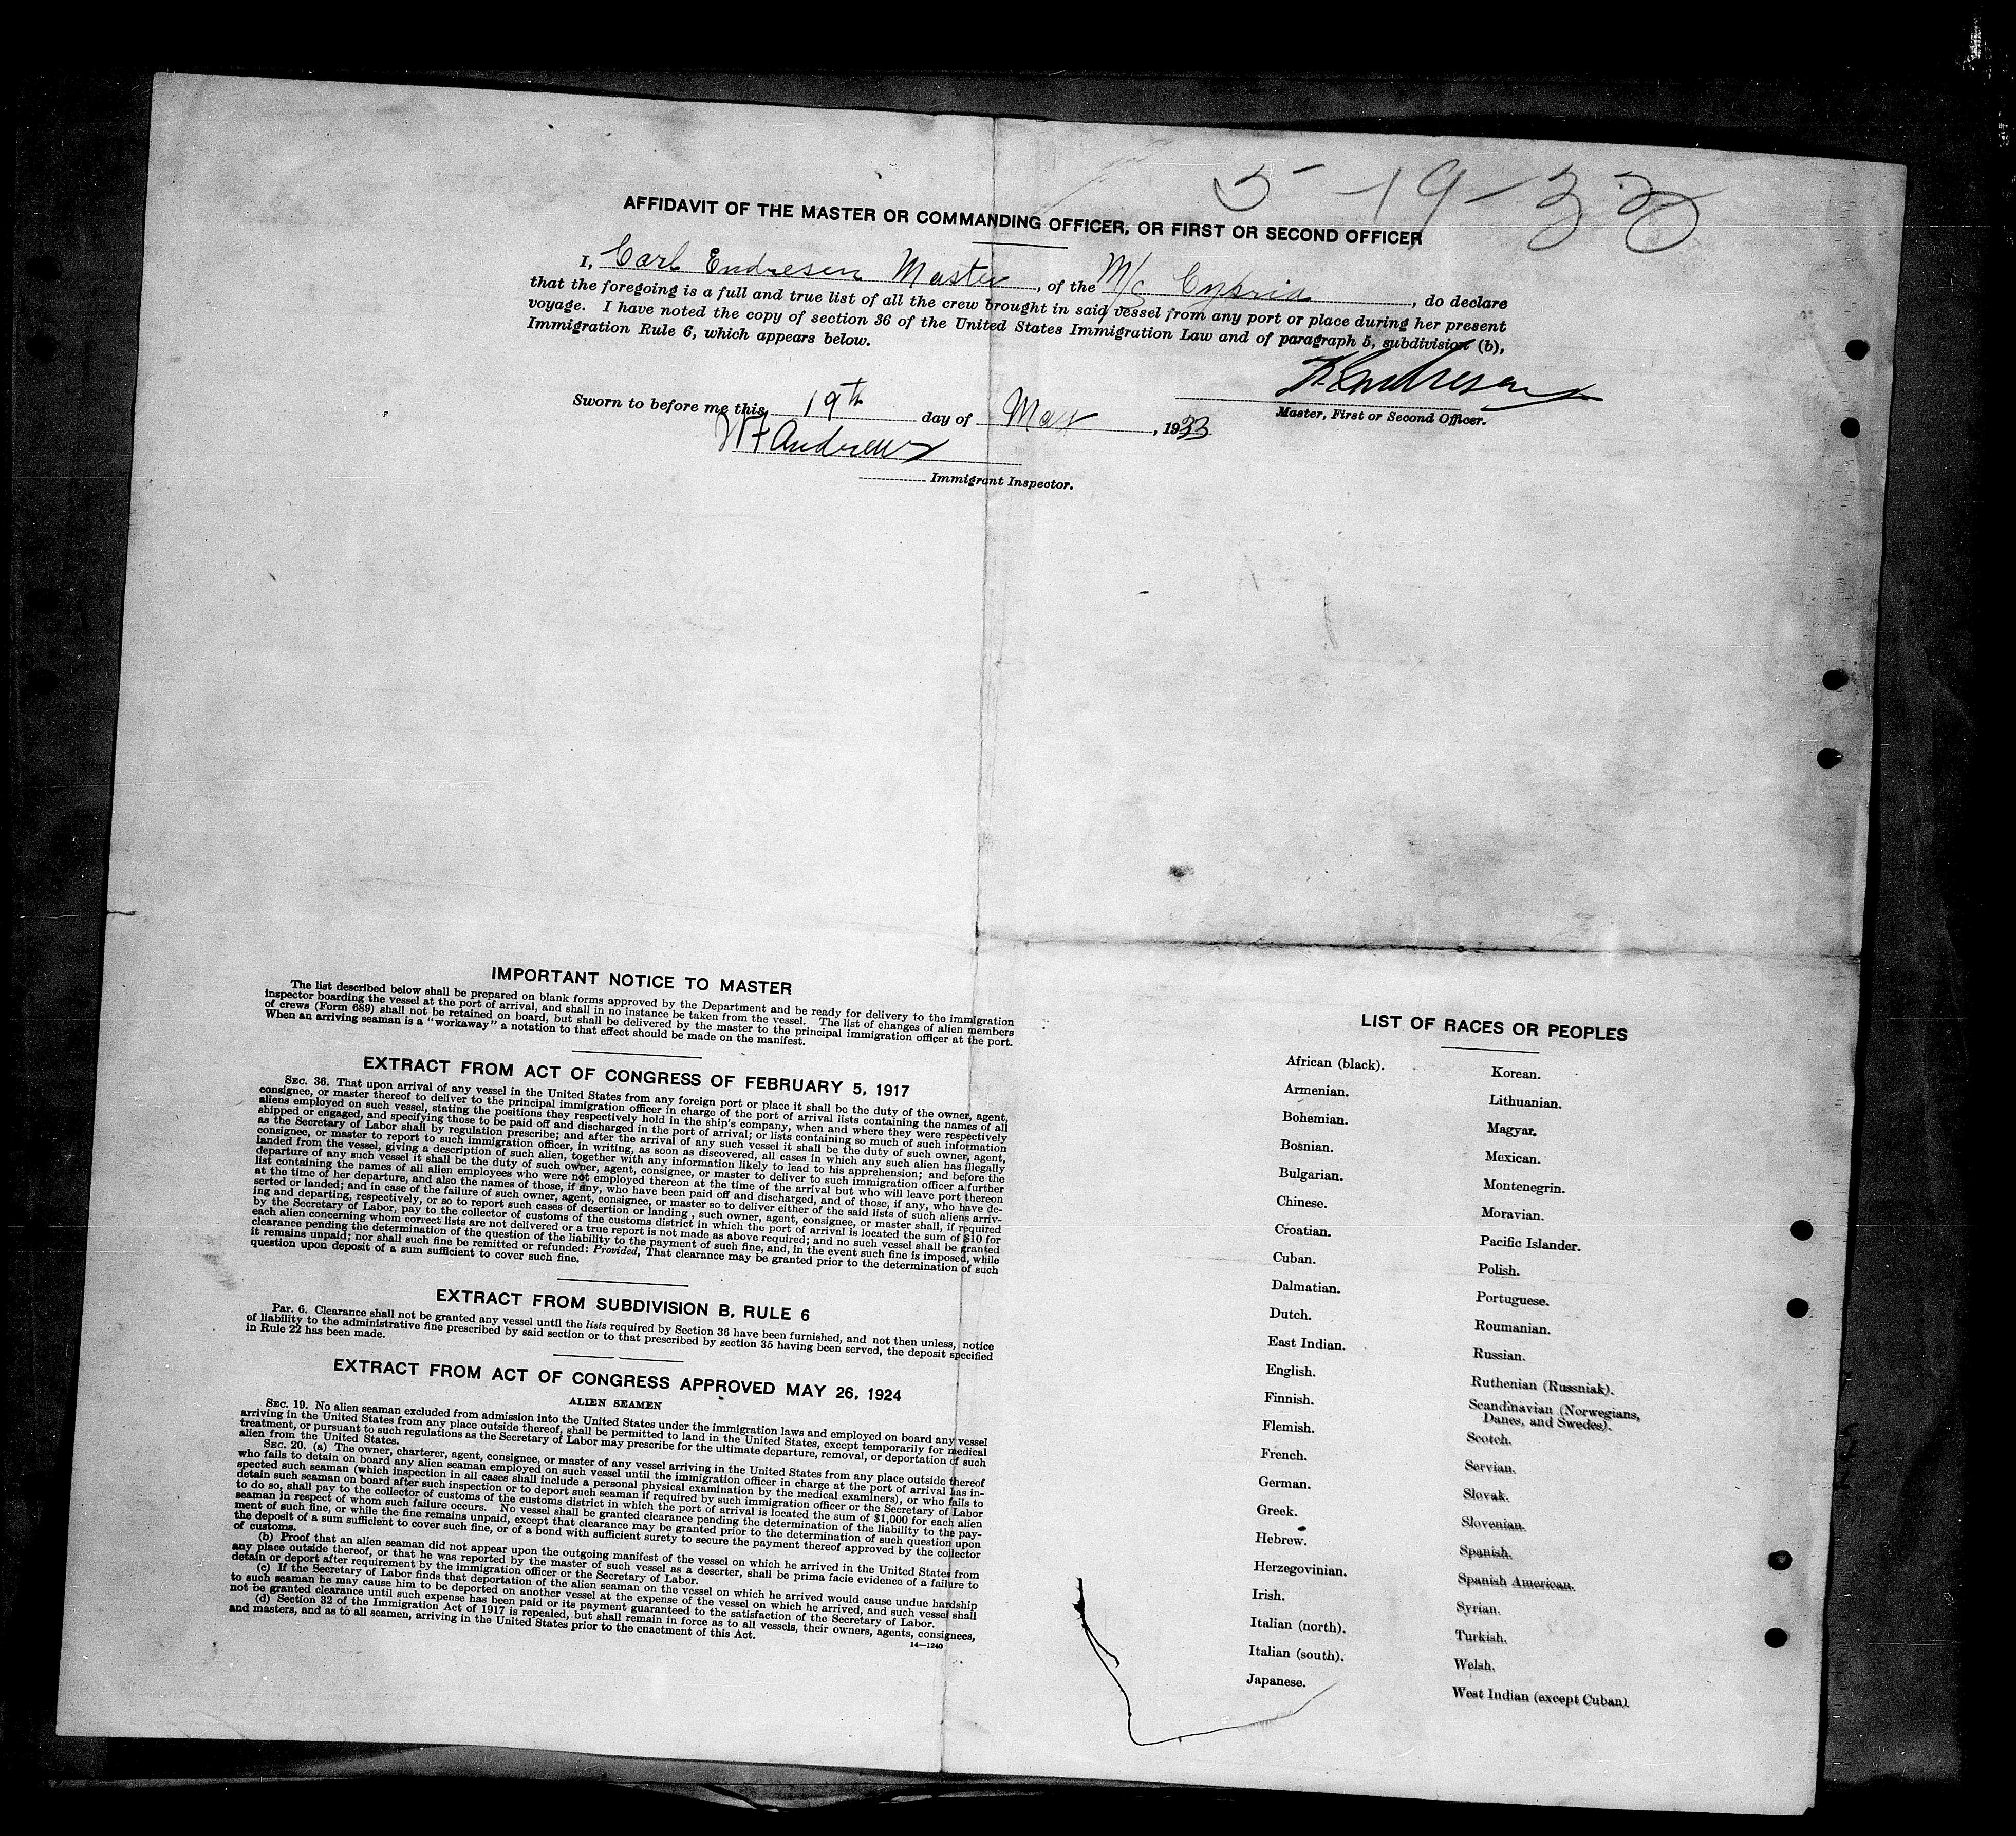 5-19-33
AFFIDAVIT OF THE MASTER OR COMMANDING OFFICER, OR FIRST OR SECOND OFFICER
I, Carl Endresen Master, of the M/S Cypria, do declare
that the foregoing is a full and true list of all the crew brought in said vessel from any port or place during her present
voyage. I have noted the copy of section 36 of the United States Immigration Law and of paragraph 5, subdivision (b),
Immigration Rule 6, which appears below.
K Endresen
Master, First or Second Officer.
Sworn to before me this 19th day of May, 1933
W F Andrews
Immigrant Inspector.
IMPORTANT NOTICE TO MASTER
The list described below shall be prepared on blank forms approved by the Department and be ready for delivery to the immigration
inspector boarding the vessel at the port of arrival, and shall in no instance be taken from the vessel. The list of changes of alien members
of crews (Form 689) shall not be retained on board, but shall be delivered by the master to the principal immigration officer at the port.
When an arriving seaman is a "workaway" a notation to that effect should be made on the manifest.
EXTRACT FROM ACT OF CONGRESS OF FEBRUARY 5, 1917
SEC. 36. That upon arrival of any vessel in the United States from any foreign port or place it shall be the duty of the owner, agent,
consignee, or master thereof to deliver to the principal immigration officer in charge of the port of arrival lists containing the names of all
aliens employed on such vessel, stating the positions they respectively hold in the ship's company, when and where they were respectively
shipped or engaged, and specifying those to be paid off and discharged in the port of arrival; or lists containing so much of such information
as the Secretary of Labor shall by regulation prescribe; and after the arrival of any such vessel it shall be the duty of such owner, agent,
consignee, or master to report to such immigration officer, in writing, as soon as discovered, all cases in which any such alien has illegally
landed from the vessel, giving a description of such alien, together with any information likely to lead to his apprehension; and before the
departure of any such vessel it shall be the duty of such owner, agent, consignee, or master to deliver to such immigration officer a further
list containing the names of all alien employees who were not employed thereon at the time of the arrival but who will leave port thereon
at the time of her departure, and also the names of those, if any, who have been paid off and discharged, and of those, if any, who have de-
serted or landed; and in case of the failure of such owner, agent, consignee, or master so to deliver either of the said lists of such aliens arriv-
ing and departing, respectively, or so to report such cases of desertion or landing , such owner, agent, consignee, or master shall, if required
by the Secretary of Labor, pay to the collector of customs of the customs district in which the port of arrival is located the sum of $10 for
each alien concerning whom correct lists are not delivered or a true report is not made as above required; and no such vessel shall be granted
clearance pending the determination of the question of the liability to the payment of such fine, and, in the event such fine is imposed, while
it remains unpaid; nor shall such fine be remitted or refunded: Provided, That clearance may be granted prior to the determination of such
question upon deposit of a sum sufficient to cover such fine.
EXTRACT FROM SUBDIVISION B, RULE 6
Par. 6. Clearance shall not be granted any vessel until the lists required by Section 36 have been furnished, and not then unless, notice
of liability to the administrative fine prescribed by said section or to that prescribed by section 35 having been served, the deposit specified
in Rule 22 has been made.
EXTRACT FROM ACT OF CONGRESS APPROVED MAY 26, 1924
ALIEN SEAMEN
SEC. 19. No alien seaman excluded from admission into the United States under the immigration laws and employed on board any vessel
arriving in the United States from any place outside thereof, shall be permitted to land in the United States, except temporarily for medical
treatment, or pursuant to such regulations as the Secretary of Labor may prescribe for the ultimate departure, removal, or deportation of such
alien from the United States.
SEC. 20. (a) The owner, charterer, agent, consignee, or master of any vessel arriving in the United States from any place outside thereof
who fails to detain on board any alien seaman employed on such vessel until the immigration officer in charge at the port of arrival has in-
spected such seaman (which inspection in all cases shall include a personal physical examination by the medical examiners), or who fails to
detain such seaman on board after such inspection or to deport such seaman if required by such immigration officer or the Secretary of Labor
to do so, shall pay to the collector of customs of the customs district in which the port of arrival is located the sum of $1,000 for each alien
seaman in respect of whom such failure occurs. No vessel shall be granted clearance pending the determination of the liability to the pay-
ment of such fine, or while the fine remains unpaid, except that clearance may be granted prior to the determination of such question upon
the deposit of a sum sufficient to cover such fine, or of a bond with sufficient surety to secure the payment thereof approved by the collector
of customs.
(b) Proof that an alien seaman did not appear upon the outgoing manifest of the vessel on which he arrived in the United States from
any place outside thereof, or that he was reported by the master of such vessel as a deserter, shall be prima facie evidence of a failure to
detain or deport after requirement by the immigration officer or the Secretary of Labor.
(c) If the Secretary of Labor finds that deportation of the alien seaman on the vessel on which he arrived would cause undue hardship
to such seaman he may cause him to be deported on another vessel at the expense of the vessel on which he arrived, and such vessel shall
not be granted clearance until such expense has been paid or its payment guaranteed to the satisfaction of the Secretary of Labor.
(d) Section 32 of the Immigration Act of 1917 is repealed, but shall remain in force as to all vessels, their owners, agents, consignees,
and masters, and as to all seamen, arriving in the United States prior to the enactment of this Act.
14—1240
LIST OF RACES OR PEOPLES
African (black).
Armenian.
Bohemian.
Bosnian.
Bulgarian.
Chinese.
Croatian.
Cuban.
Dalmatian.
Dutch.
East Indian.
English.
Finnish.
Flemish.
French.
German.
Greek.
Hebrew.
Herzegovinian.
Irish.
Italian (north).
Italian (south).
Japanese.
Korean.
Lithuanian.
Magyar.
Mexican.
Montenegrin.
Moravian.
Pacific Islander.
Polish.
Portuguese.
Roumanian.
Russian.
Ruthenian (Russniak).
Scandinavian (Norwegians,
Danes, and Swedes).
Scotch.
Servian.
Slovak.
Slovenian.
Spanish.
Spanish American.
Syrian.
Turkish.
Welsh.
West Indian (except Cuban).